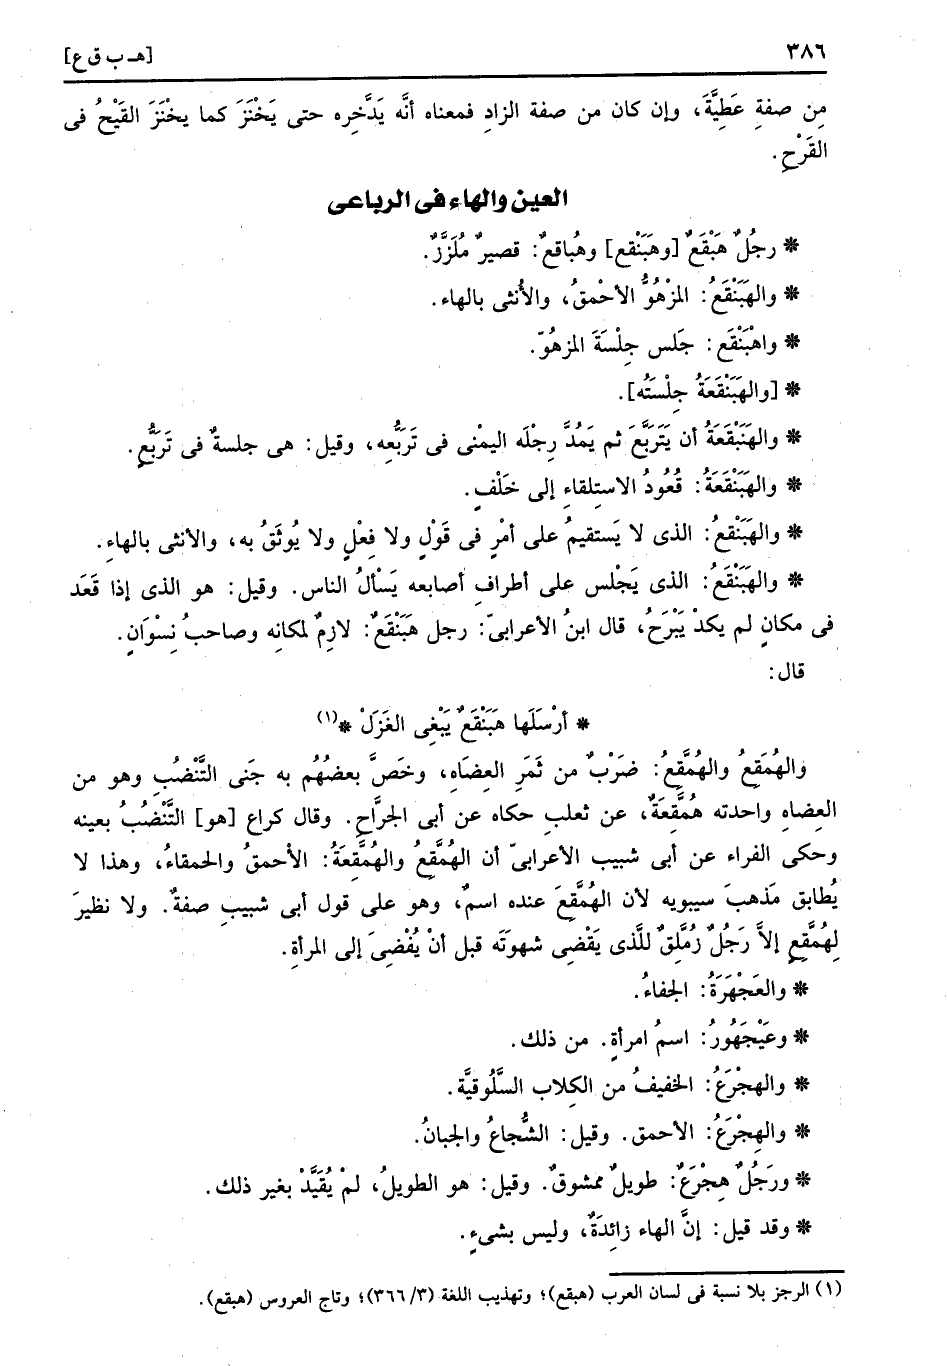 ٣٨٦
[هـ ب ق ع]
مِن صفةِ عَطِيَّةَ، وإن كان من صفة الزادِ فمعناه أنَّه يَدَّخِره حتى يَخْنَزَ كما يخْنَزَ القَيْحُ فى
القَرْحِ.
العين والهاء فى الرباعى
* رجُلٌ هَبْقَعٌ [وهَبَنْقع] وهُباقعٌ: قصيرٌ مُلَزَّزٌ.
* والهَبَنْقَعُ: المزْهُوُّ الأحْمقُ، والأُنثى بالهاء.
* واهْبَنْقَع: جَلس جِلْسَةَ المزهُوّ.
* [والهَبَنْقَعَةُ جِلْسَتُه].
* والهَنَبْقَعَةُ أن يَتَربَّعَ ثم يَمُدَّ رِجْلَه اليمْنى فى تَرَبُّعِه، وقيل: هى جلسةٌ فى تَرَبُّعٍ.
* والهَبَنْقَعَةُ: قُعُودُ الاستِلقاءِ إلى خَلْفٍ.
* والهَبَنْقعُ: الذى لا يَستقيمُ على أمْرٍ فى قَوْلٍ ولا فِعْلٍ ولا يُوثَقُ به، والأنثى بالهاءِ.
* والهَبَنْقعُ: الذى يَجْلس على أطرافِ أصابعه يَسْألُ الناس. وقيل: هو الذى إذا قَعَد
فى مكانٍ لم يكدْ يَبْرَحُ، قال ابنُ الأعرابىّ: رجل هَبَنْقَعٌ: لازِمٌ لمكانِه وصاحبُ نِسْوَانٍ.
قال:
* أرْسَلَها هَبَنْقَعٌ يَبْغِى الغَزَلْ *(١)
والهُمَقِعُ والهُمَّقِعُ: ضَرْبٌ من ثَمَرِ العِضَاهِ، وخَصَّ بعضُهُم به جَنى التَّنْضُبِ وهو من
العِضاهِ واحدته هُمَّقِعَةٌ، عن ثعلبِ حكاه عن أبى الجرَّاحِ. وقال كراع [هو] التَّنْضُبُ بعينه
وحكى الفراء عن أبى شبيب الأعرابىّ أن الهُمَّقِعُ والهُمَّقِعَةُ: الأحمقُ والحمقاءُ، وهذا لا
يُطابق مَذهبَ سيبويه لأن الهُمَّقِعَ عنده اسمٌ، وهو على قول أبى شبيبٍ صفةٌ. ولا نظيرَ
لِهُمَّقِعٍ إلاَّ رَجُلٌ زُمَّلِقٌ للَّذى يَقْضِى شهوَتَه قبل أنْ يُفْضِىَ إلى المرأةِ.
* والعَجْهَرَةُ: الجفاءُ.
* وعَيْجَهُورُ: اسمُ امرأةٍ. من ذلك.
* والهِجْرَعُ: الخفيفُ من الكِلاب السَّلُوقيَّة.
* والهِجْرَعُ: الأحمق. وقيل: الشُّجاعُ والجبانُ.
* ورَجُلٌ هِجْرَعٌ: طويلٌ ممشوقٌ. وقيل: هو الطويلُ، لمْ يُقَيَّدْ بغير ذلك.
* وقد قيل: إنَّ الهاء زائِدَةٌ، وليس بشىءٍ.
(١) الرجز بلا نسبة فى لسان العرب (هبقع)؛ وتهذيب اللغة (٣/٣٦٦)؛ وتاج العروس (هبقع).